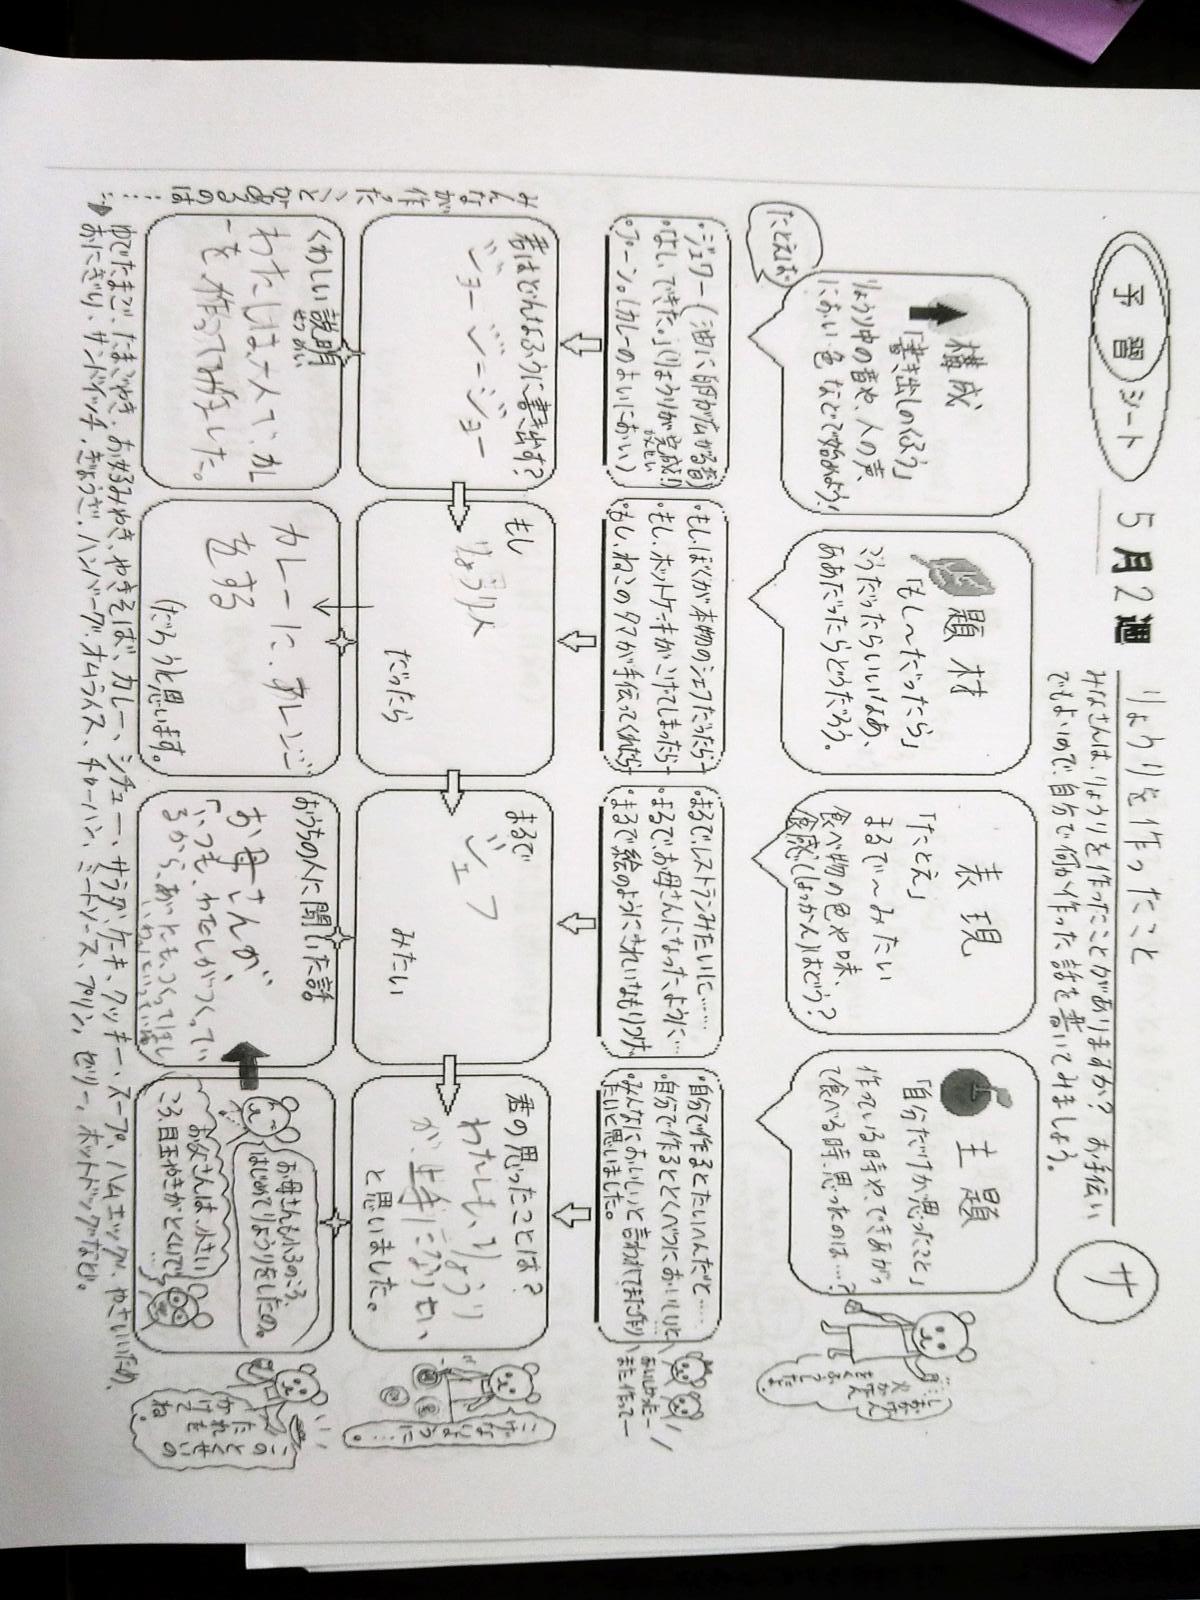 予習シート
5月2週
りょうりを作ったこと
みなさんは、りょうりを作ったことがありますか？お手伝い
でもよいので、自分で何か作った話を書いてみましょう。
サ
構成
「書き出しのくふう」
りょうり中の音や、人の声、
におい、色などで始めよう！
題材
「もし〜だったら」
こうだったらいいなあ、
ああだったらどうだろう。
表現
「たとえ」
まるで〜みたい
食べ物の色や味、
食感（しょっかん）はどう？
主題
「自分だけが思ったこと」
作っている時や、できあがっ
て食べる時、思ったのは…？
たとえば
・ジュワー（油に卵が広がる音）
・「よし、できた。」（りょうりが完成！）
・プーン。（カレーのよいにおい）
・もし、ぼくが本物のシェフだったら…
・もし、ホットケーキがこげてしまったら…
・もし、ねこのタマが手伝ってくれたら…
・まるで、レストランみたいに……
・まるで、お母さんになったように…
・まるで絵のようにきれいなもりつけ
・自分で作るとたいへんだと……
・自分で作るととくべつにおいしいと…
・みんなにおいしいと言われてまた作り
たいと思いました。
おいしかったー
また作ってー
君はどんなふうに書き出す？
ジョージージョー
もし
りょうり人
だったら
まるで
シェフ
みたい
君の思ったことは？
わたしも、りょうり
が、上手になりたい
と思いました。
こげないように…。
くわしい説明
せつめい
わたしは、一人で、カレ
ーを作ってみました。
カレーに、アレンジ
をする
（だろうと思います。
おうちの人に聞いた話
お母さんが、
「いつも、わたしがつくってい
るから、あいともつくってほし
お母さんも小3のころ、
はじめてりょうりをしたの。
お父さんは、小さい
ころ、目玉やきがとくいで
みんなが作ったことがあるのは……
ゆでたまご、たまごやき、お好みやき、やきそば、カレー、シチュー、サラダ、ケーキ、クッキー、スープ、ハムエッグ、やさいいため、
おにぎり、サンドイッチ、ぎょうざ、ハンバーグ、オムライス、チャーハン、ミートソース、プリン、ゼリー、ホットドッグなど。